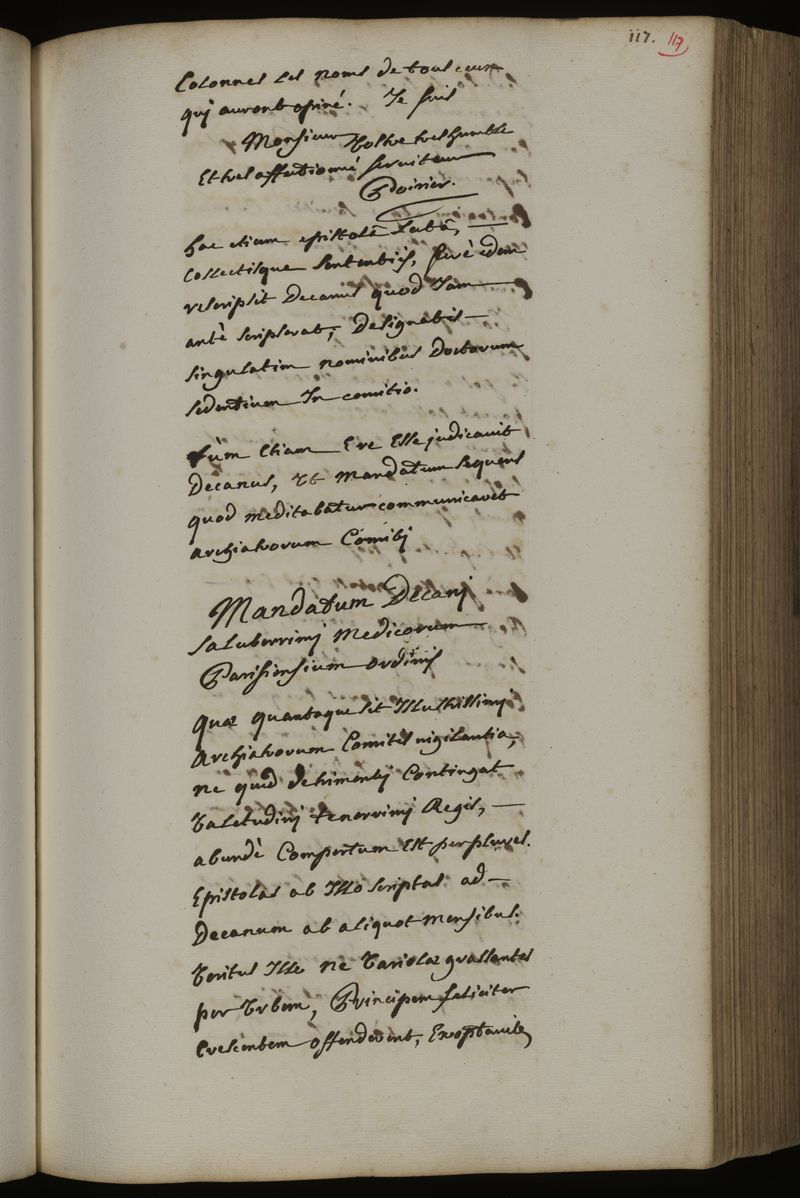 117. 117
Colonnes les noms de tous ceux
qui auront opiné. Je suis
Monsieur Vostre tres humble
Et tres affectionné serviteur
Poirier.
hac etiam epistolâ Lectâ,
Collectisque Sententijs, ferè idem
rescripsit Decanus quod Jam
antè scripserat, Designatis
singulatim nominibus Doctorum
sedentium In comitio.
tùm Etiam E re Esse judicavit
Decanus, Vt Mandatum sequens
quod meditabatur communicaret
archiatrorum Comiti
Mandatum Decanj
Saluberrimj Medicorum
Parisiensium ordinis
Quæ quantaque sit Illustrissimj
Archiatrorum Comitis vigilantia,
ne quid detrimentj Contingat
Valetudinj tenerrimj Regis,
abundè Compertum Est per plures.
Epistolas ab Illo scriptas ad
Decanum ab aliquot mensibus.
Veritus Ille ne Variolæ grassantes
per Vrbem, Principem feliciter
Crescentem offenderent, Exoptavit